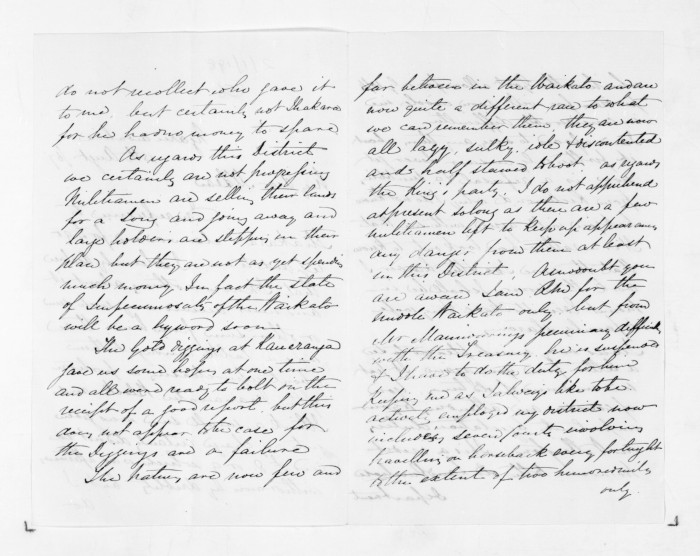 do not recollect who gave it
to me. but certainly not Ihakara
for he had no money to spare
As regards this District
we certainly are not progressing
Militiamen are selling their lands
for a Song and going away and
large holders are stepping in their
place but they are not as yet spending
much money In fact the state
of Impecuniosity of the Waikato
will be a byword soon
The Gold diggings at Kaueranga
gave us some hopes at one time
and all were ready to bolt on the
receipt of a good report. but this
does not appear to be case for
the Diggings are a failure
The natives are now few and
far between in the Waikato and are
now quite a different race to what
we can remember them they are now
all lazy, sulky, idle & discontented
and half starved to boot. as regards
the King's party, I do not apprehend
at present so long as there are a few
militiamen left to keep up appearances
any danger from them at least
in this District. As no doubt you
are aware I am RM for the
middle Waikato only but from
Mr pecuniary difficulty
with the Treasury he is suspended
& I have to do the duty for him
keeping me as I always like to be
actively employed my district now
includes seven courts involving
travelling on horseback every fortnight
to the extent of two hundred miles
only.